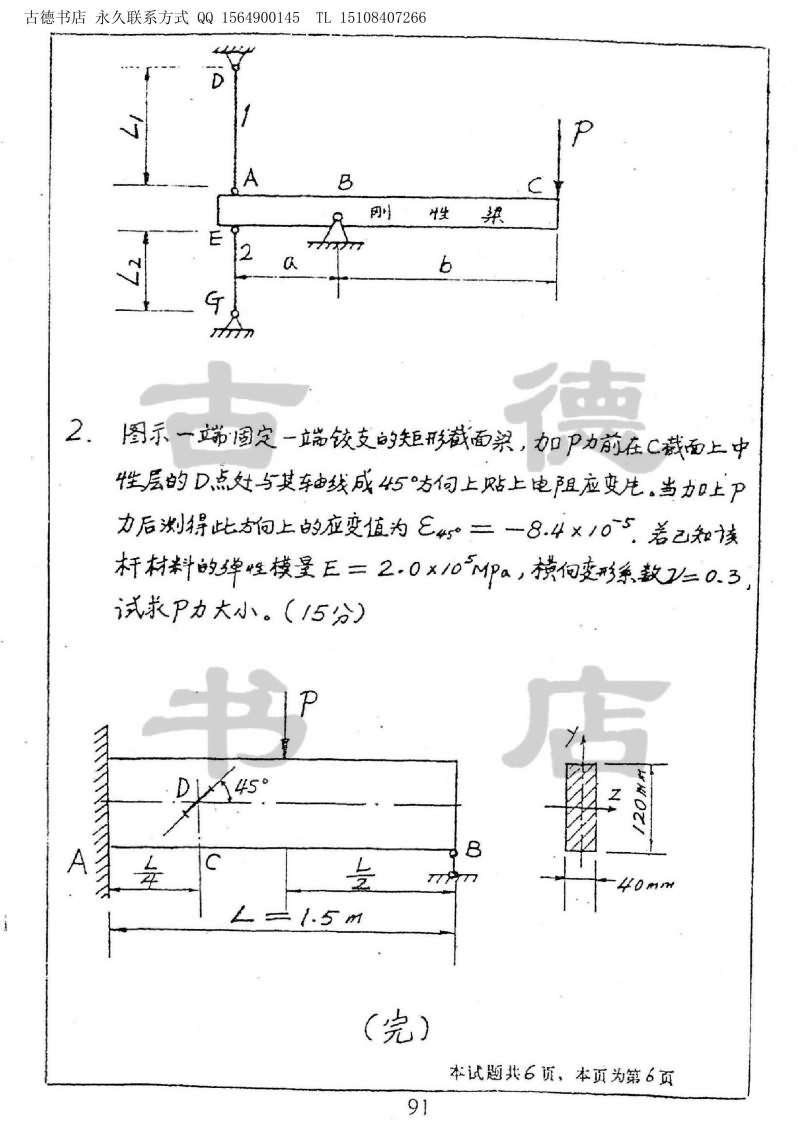 古德书店 永久联系方式 QQ 1564900145 TL 15108407266
D
L1
1
A
B
C
P
刚 性 梁
E
2
L2
a
b
G
古 德
2. 图示一端固定一端铰支的矩形截面梁,加P力前在C截面上中
性层的D点处与其轴线成45°方向上贴上电阻应变片。当加上P
力后测得此方向上的应变值为 ε45° = -8.4×10⁻⁵. 若已知该
杆材料的弹性模量E = 2.0×10⁵MPa, 横向变形系数ν=0.3,
试求P力大小。(15分)
书 店
P
D
45°
A
L/4
C
L/2
B
L = 1.5 m
Y
Z
120mm
40mm
(完)
本试题共6页, 本页为第6页
91